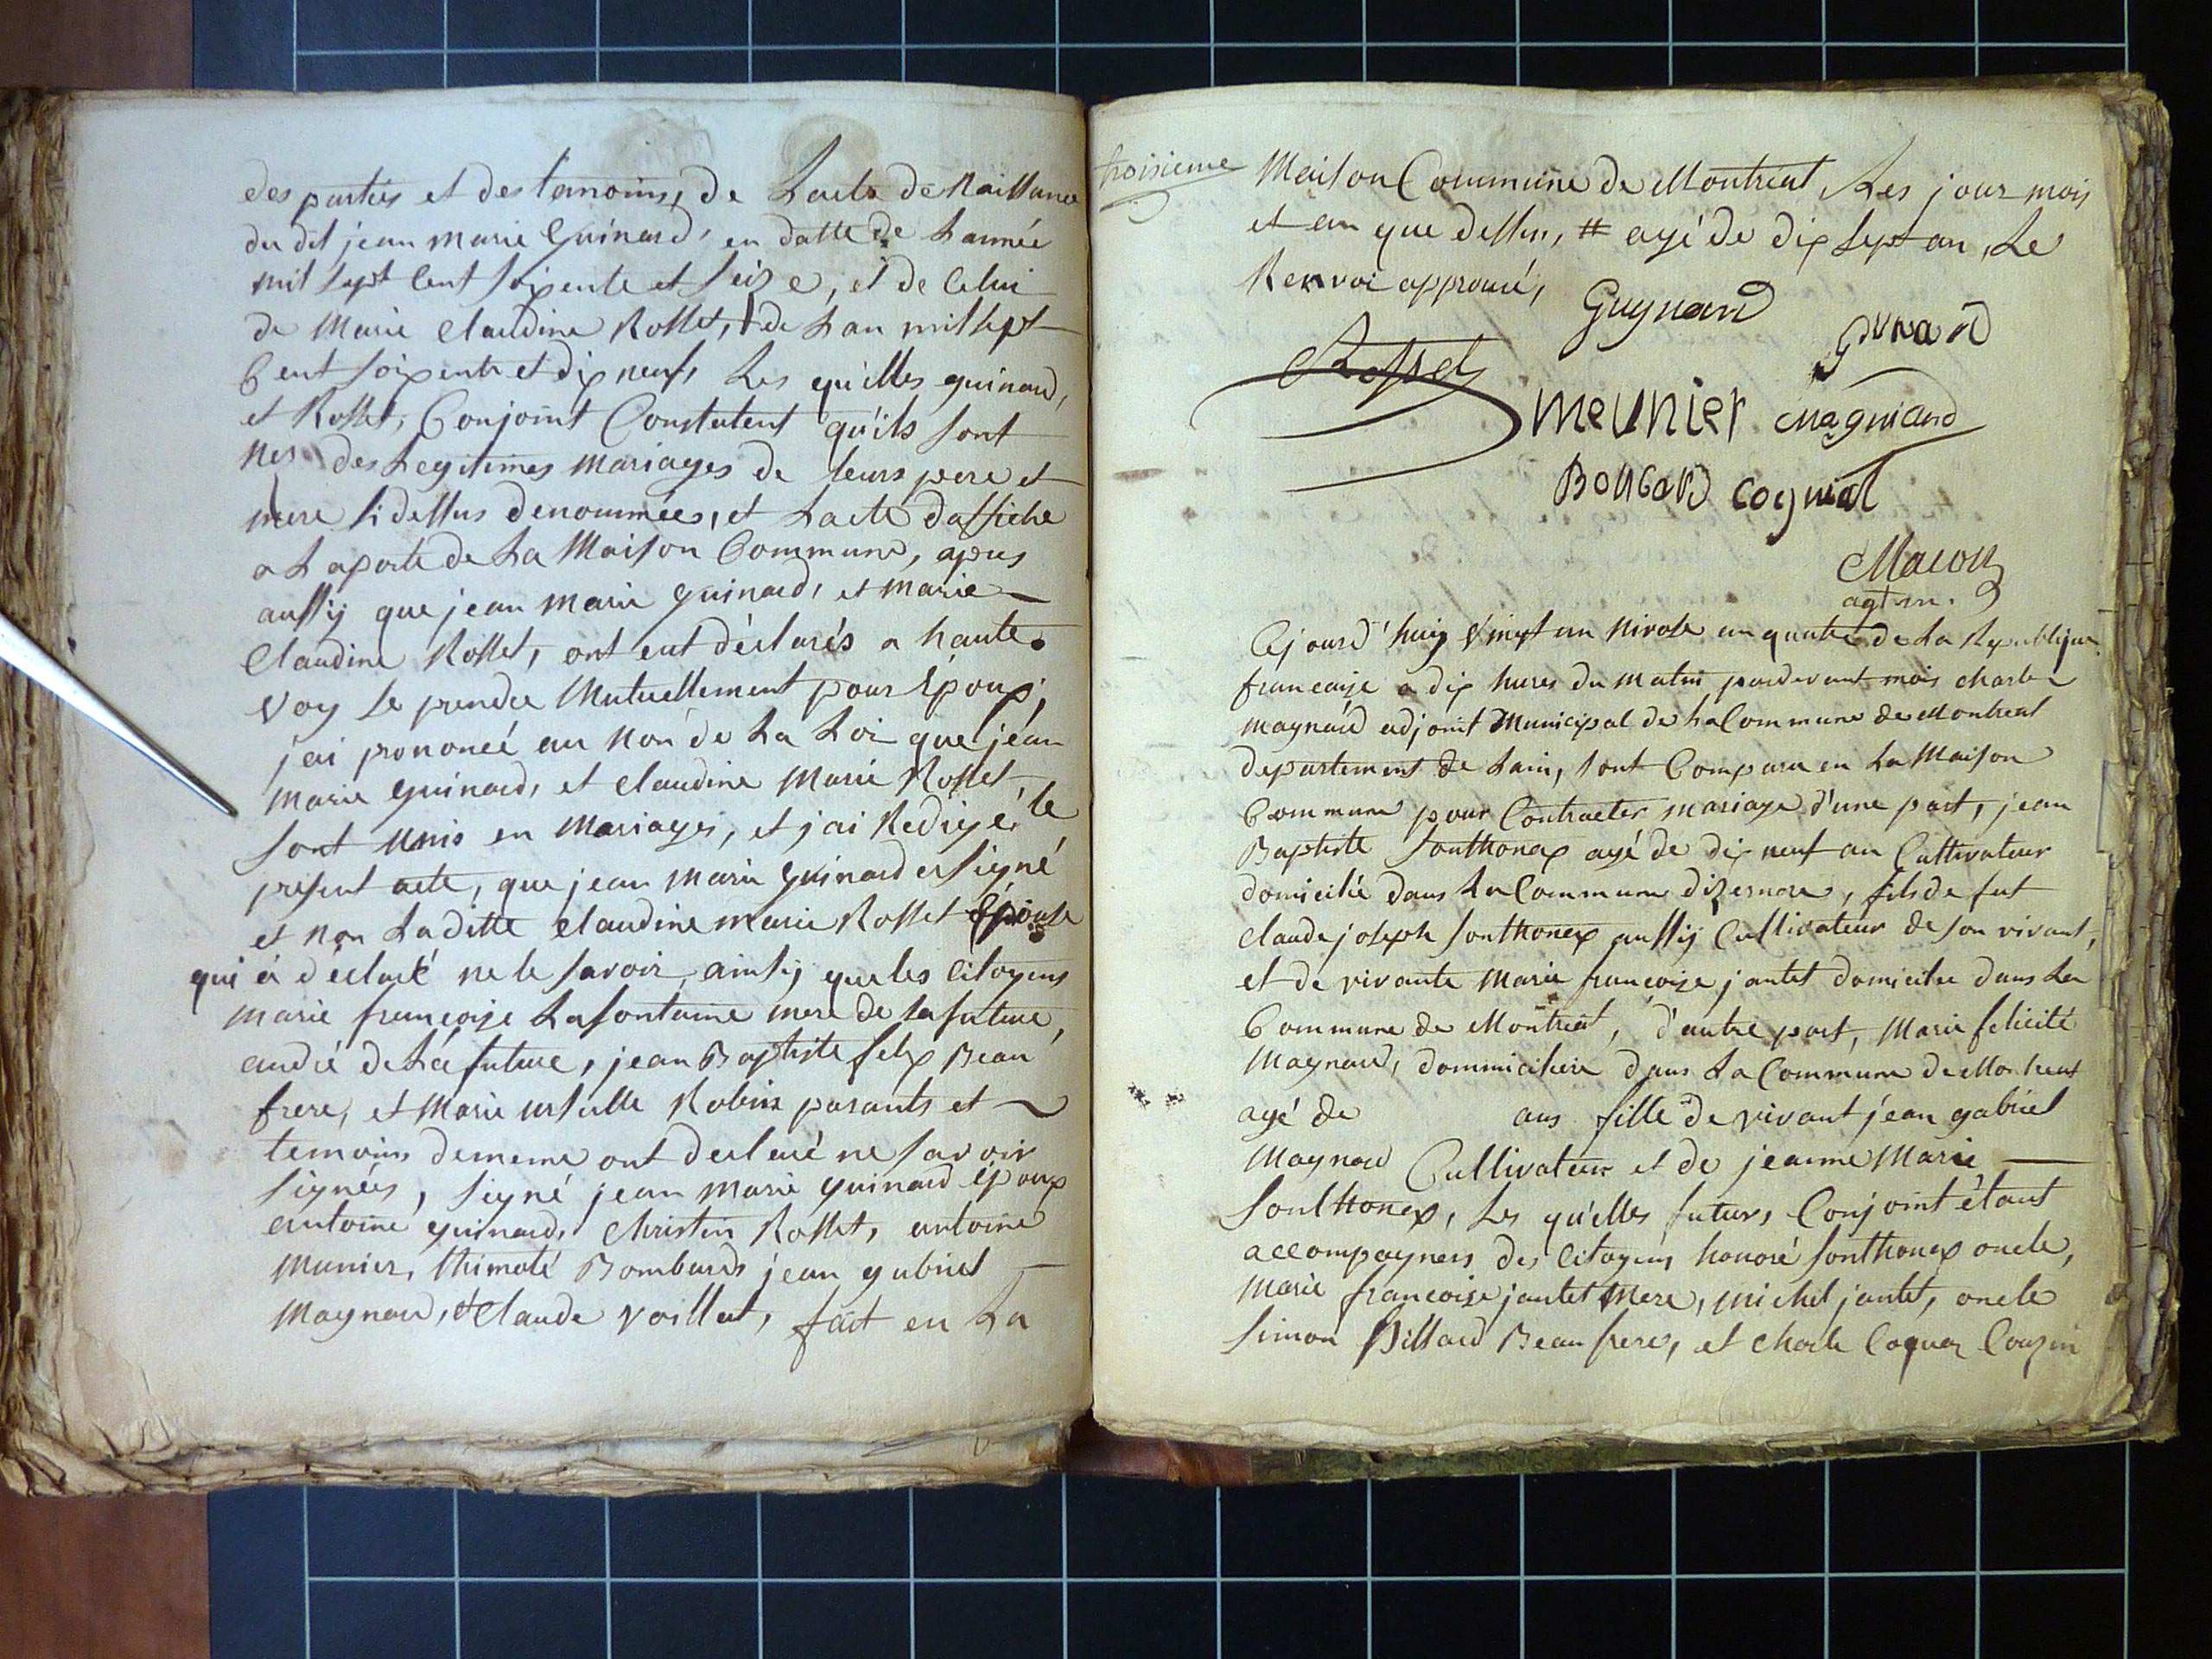 des partiés et des temoins, de Lacte de Naissance
du dit jean marie Guinard, en datte de Lannée
mil sept Cent soixente et seize, et de Celui
de Marie Claudine Rosset, de Lan mil sept
Cent soixente et dix neuf, Les quélles guinard,
et Rosset, Conjoint Constatent qu'ils sont
nes des Legitimes mariages de leurs pere et
mere si dessus denommées, et Lacte daffiche
a Laporte de La Maison Commune, apres
aussÿ que jean marie guinard, et marie
Claudine Rosset, ont eut déclarés a haute
voÿ se prendre Mutuellement pour Époux,
jai prononcé au Nom de La Loi que jéan
marie guinard, et Claudine Marie Rosset,
sont unis en Mariages, et j'ai Redigé le
present acte, que jean marie Guinard a signé
et non Laditte Claudine marie Rosset Épouse
qui à déclaré ne le savoir, ainsÿ que les Citoyens
marie françoise Lafontaine mere de la future,
andré de La future, jean Baptiste felix Beau
frere, et Marie ursulle Robin parants et
temoins dememe ont declaré ne savoir
signées, signé jean marie guinard époux
antoine guinard, Christin Rosset, antoine
Munier, thimoté Bombard, jean gabriel
Magnard, et Claude Voillat, fait en La
troisieme
Maison Commune de Montreal Les jour mois
et an que dessus, # agé de dix sept an, Le
Renvoi approuvé,
Guynard
gunard
Rosset
meunier magniard
Bonbard cognial
Macon
agt m.
Cejourd'huiy vingt un Nivose an quatre de La Republique
francaise a dix hures du matin pardevant mois charle
magnard adjoint Municipal de La Commune de Montreal
departement de Lain, sont Comparu en La Maison
Commune pour Contracter mariage d'une part, jean
Baptiste Sonthonax agé de dix neuf an Cultivateur
domicilié dans La Commune dizernore, fils de fut
Claude joseph Sonthonax aussÿ Cultivateur de son vivant,
et de vivante Marie françoise jantet domicilée dans La
Commune de Montreal, d'autre part, Marie felicité
Magnard, dommiciliée dans La Commune de Montreal
agé de ans fille de vivant jean gabriel
Magnard Cultivateur et de jeanne Marie
Sonthonax, Les qu'elles futurs Conjoint étant
accompagners des Citoyens honoré Sonthonax oncle,
Marie françoise jantet Mere, michel jantet, oncle
Simon Billard Beau frere, et Charle Coquaz Couzin